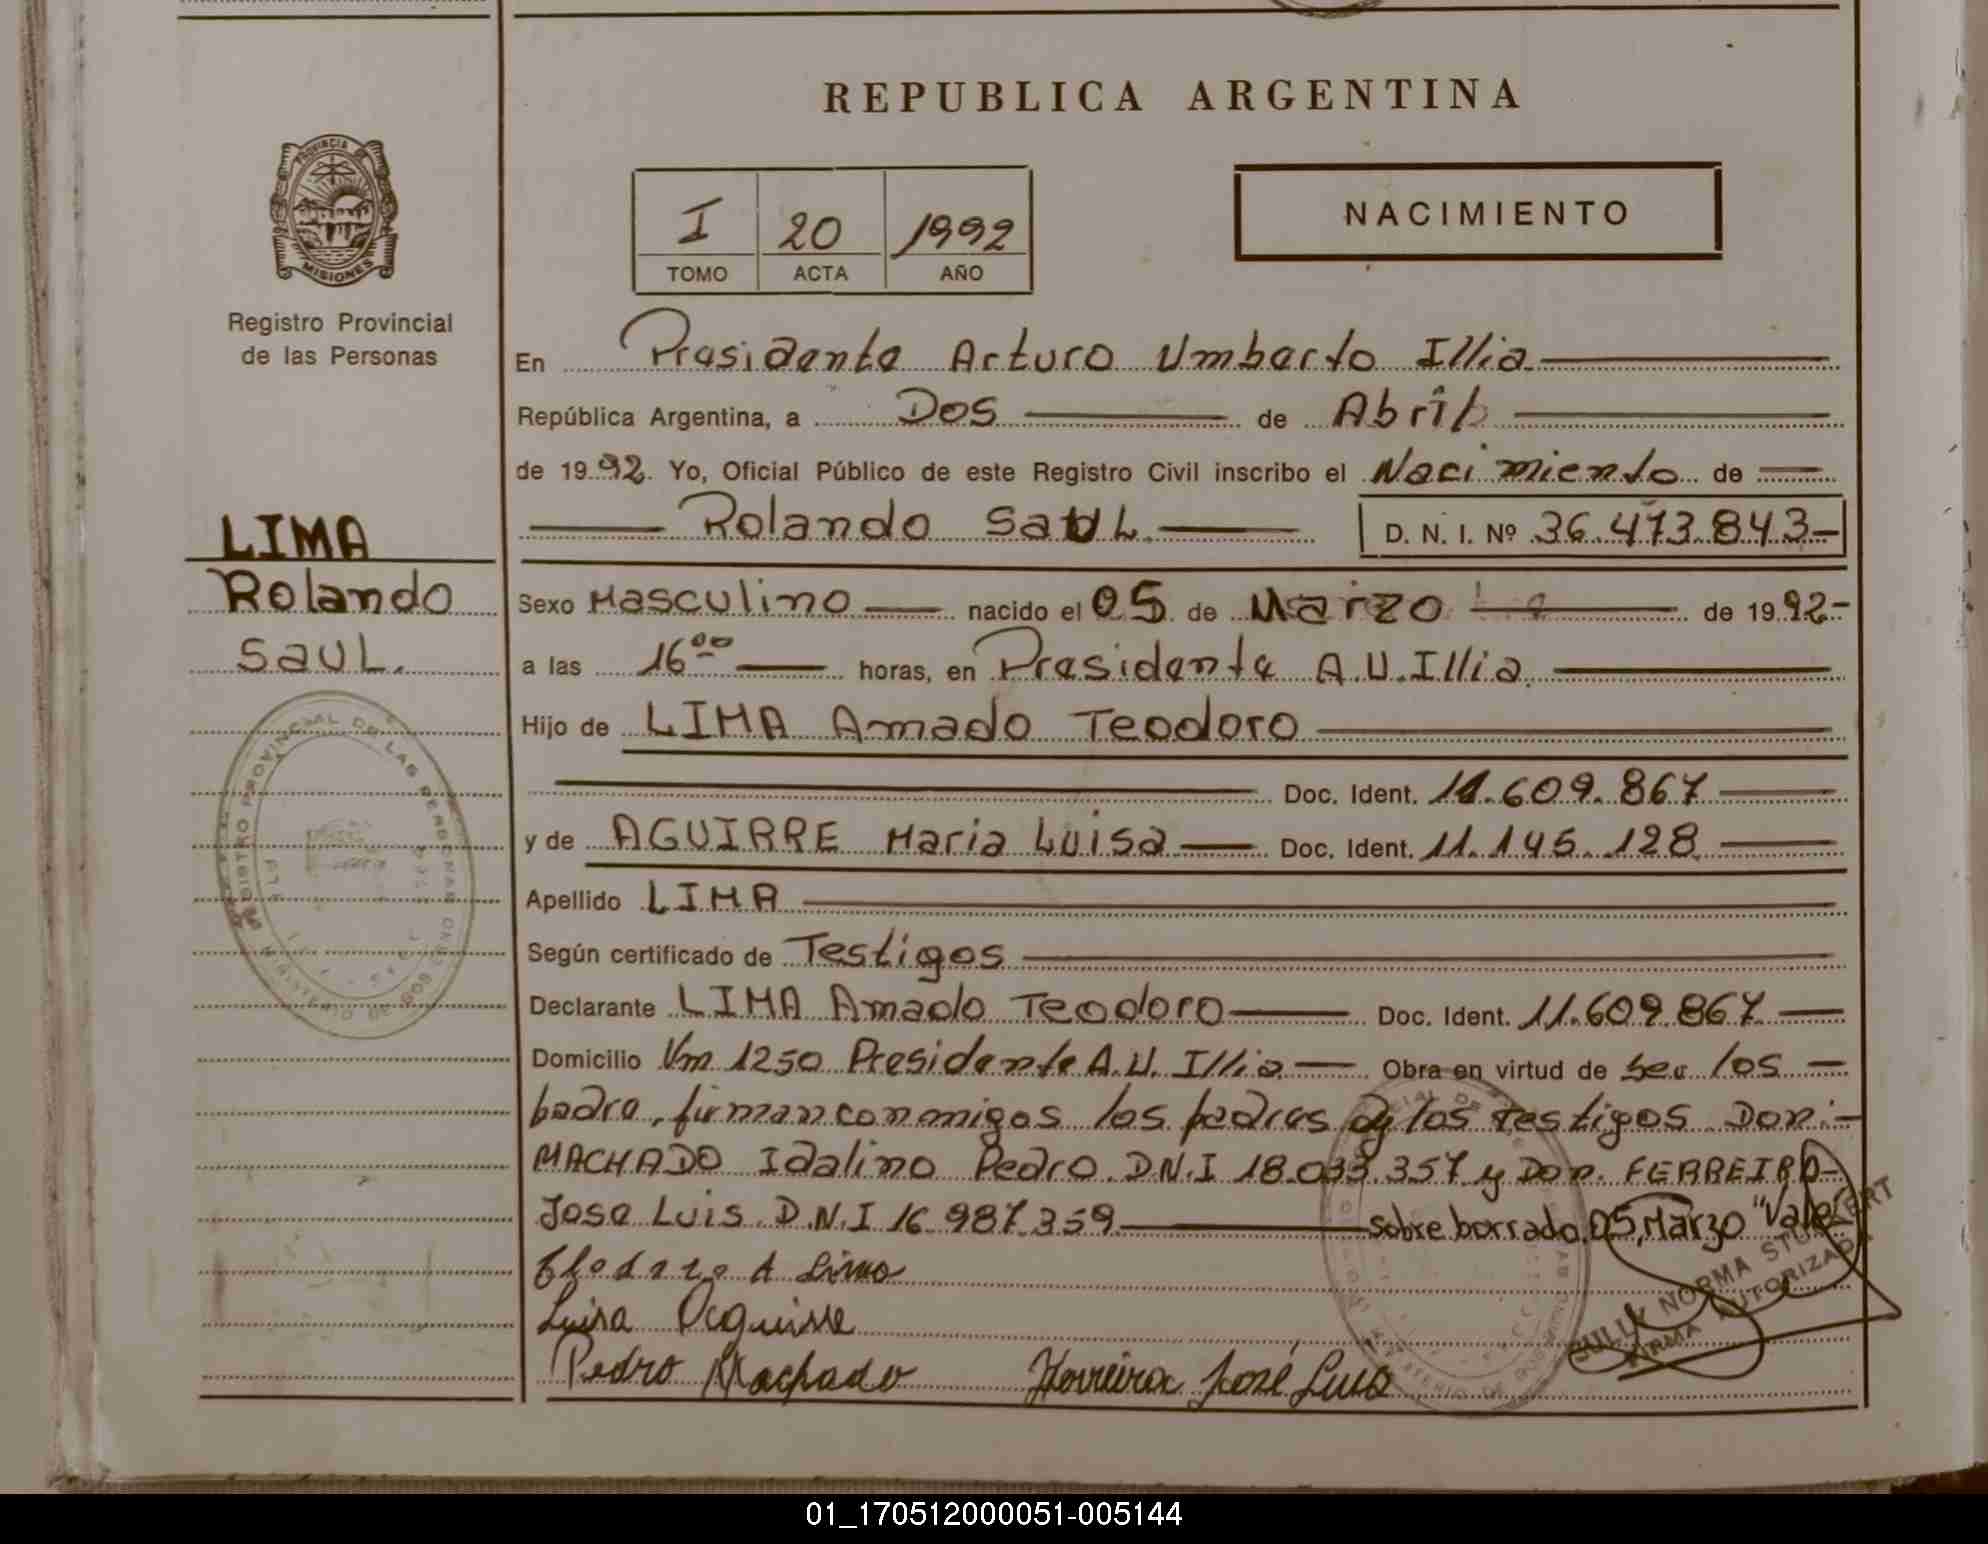 REPUBLICA ARGENTINA
PROVINCIA DE
MISIONES
Registro Provincial
de las Personas
I 20 1992
TOMO ACTA AÑO
NACIMIENTO
En Presidente Arturo Umberto Illia
República Argentina, a Dos de Abril
de 1992. Yo, Oficial Público de este Registro Civil inscribo el Nacimiento de
Rolando Saul D. N. I. Nº 36.473.843-
LIMA
Rolando
Saul.
Sexo Masculino nacido el 05 de Marzo de 1992-
a las 16°° horas, en Presidente A.U.Illia
Hijo de LIMA Amado Teodoro
Doc. Ident. 11.609.867
y de AGUIRRE Maria Luisa Doc. Ident. 11.145.128
Apellido LIMA
Según certificado de Testigos
Declarante LIMA Amado Teodoro Doc. Ident. 11.609.867
Domicilio Vm 1250 Presidente A.U. Illia Obra en virtud de ser los
padre, firman conmigos los padres y los testigos Don:-
MACHADO Idalino Pedro D.N.I 18.033.357 y Don. FERREIRA-
Jose Luis D.N.I 16.987.359 sobre borrado, 05, Marzo "Vale"
Luisa Aguirre
Pedro Machado Ferreira José Luis
NORMA
FIRMA AUTORIZADA
REGISTRO PROVINCIAL DE LAS PERSONAS
01_170512000051-005144